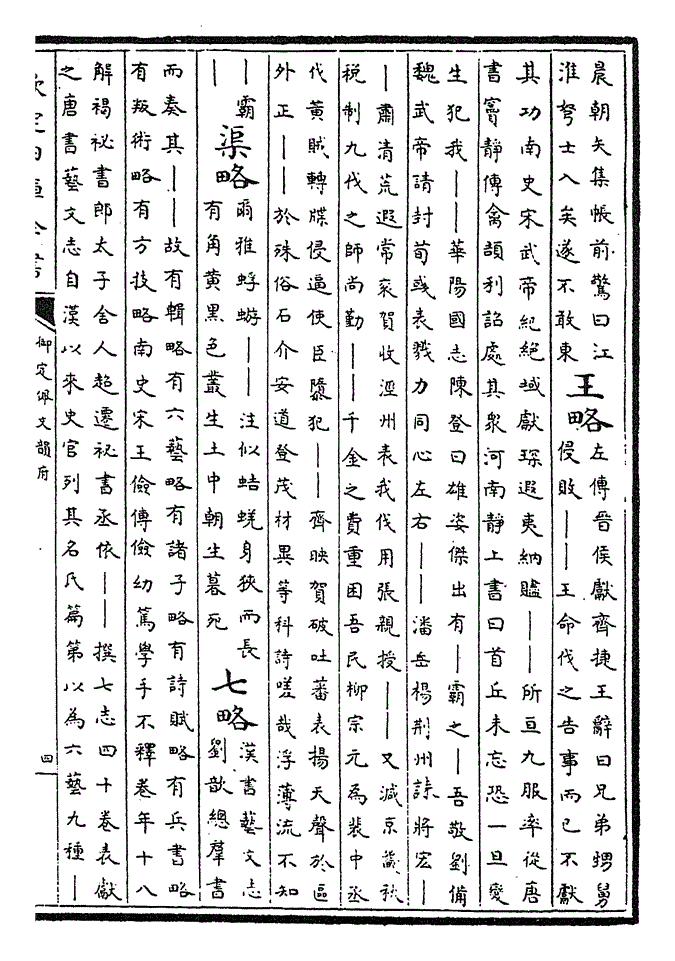 晨朝矢集帳前驚曰江
淮弩士入矣遂不敢東
王略
左傳晉侯獻齊捷王辭曰兄弟甥舅
侵敗——王命伐之告事而已不獻
其功南史宋武帝紀絕域獻琛遐夷納贐——所亘九服率從唐
書竇靜傳禽頡利詔處其衆河南靜上書曰首丘未忘恐一旦變
生犯我——華陽國志陳登曰雄姿傑出有—霸之—吾敬劉備
魏武帝請封荀彧表戮力同心左右——潘岳楊荆州誄將宏—
—肅清荒遐常衮賀收涇州表我伐用張親授——又減京畿秋
稅制九伐之師尚勤——千金之費重困吾民柳宗元為裴中丞
代黃賊轉牒侵逼使臣隳犯——齊映賀破吐蕃表揚天聲於區
外正——於殊俗石介安道登茂材異等科詩嗟哉浮薄流不知
—霸
—
渠略
爾雅蜉蝣——注似蛣蜣身狹而長
有角黃黑色叢生土中朝生暮死
七略
漢書藝文志
劉歆總羣書
而奏其——故有輯略有六藝略有諸子略有詩賦略有兵書略
有叛術略有方技略南史宋王儉傳儉幼篤學手不釋卷年十八
解褐祕書郎太子舍人超遷祕書丞依——撰七志四十卷表獻
之唐書藝文志自漢以來史官列其名氏篇第以為六藝九種—
欽定四庫全書
御定佩文韻府
四